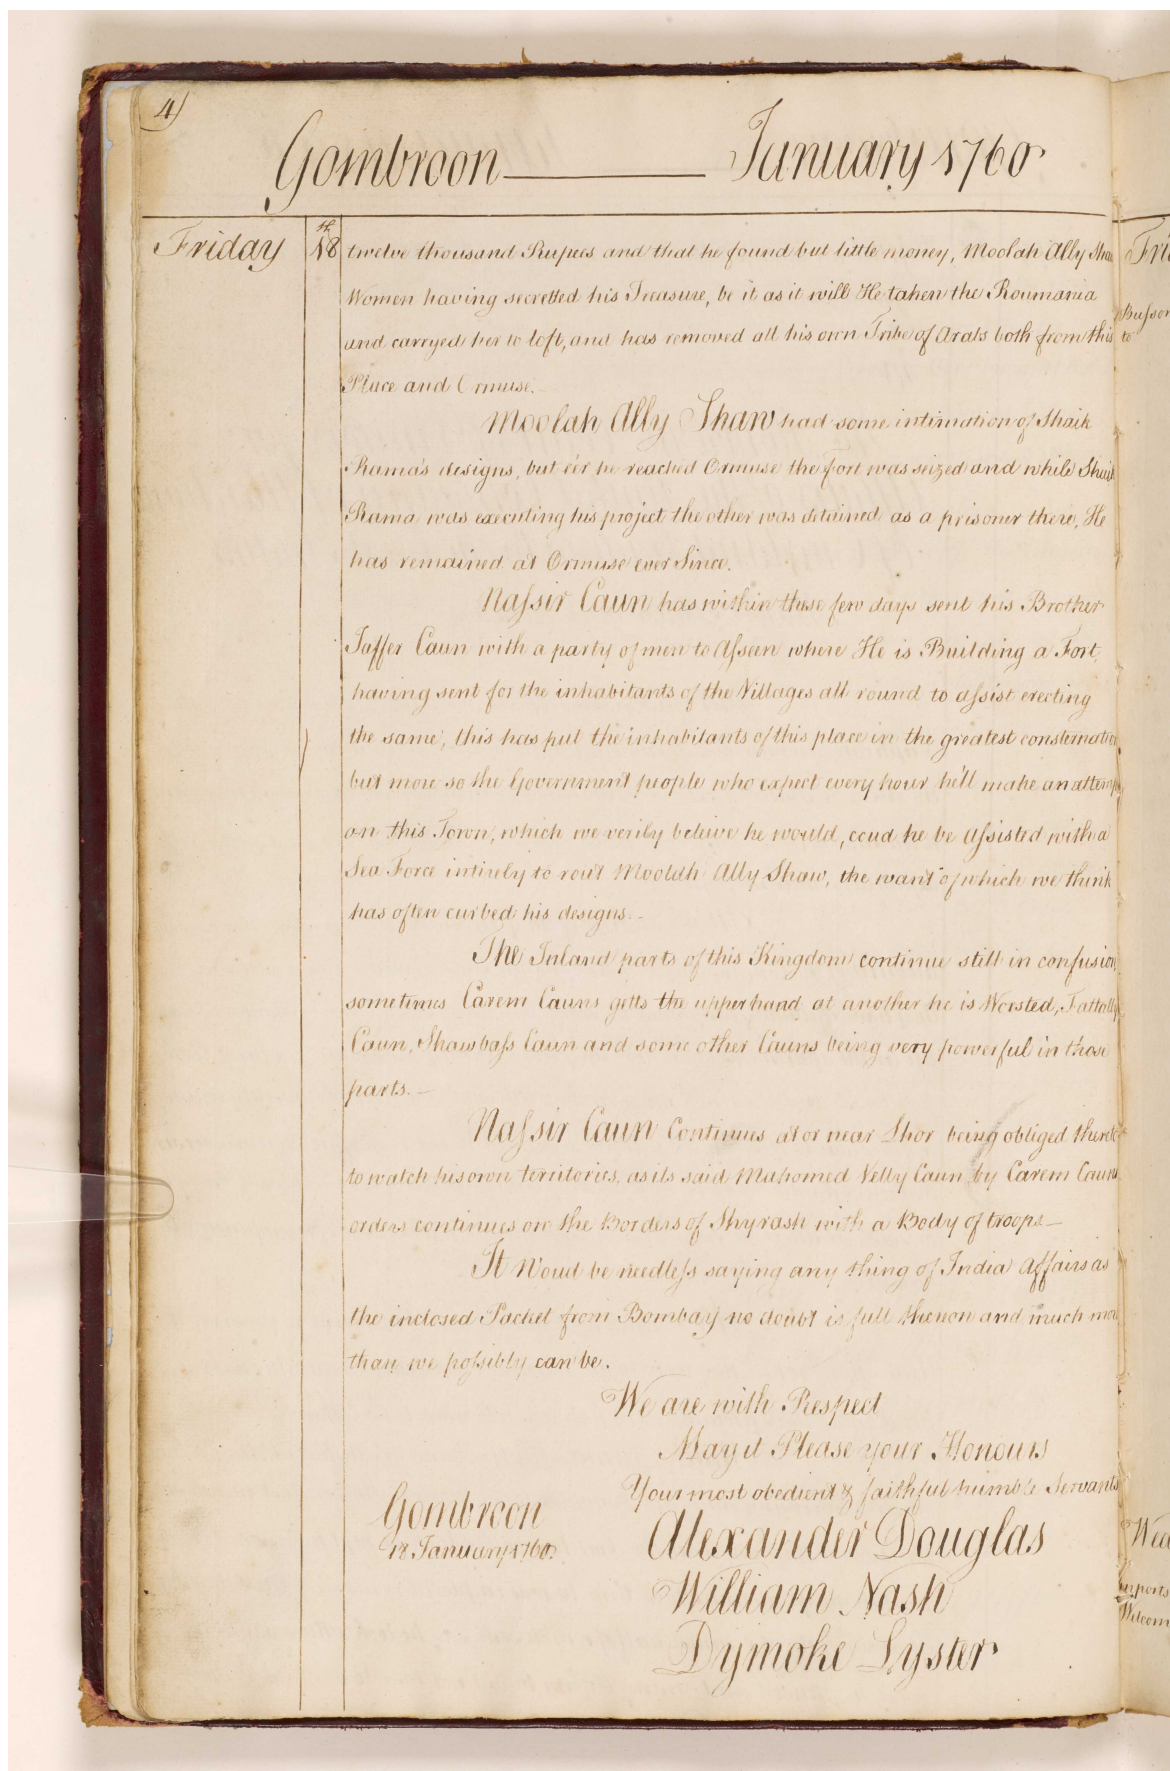 4)
Gombroon January 1760
Friday 18th twelve thousand Rupees and that he found but little money, Moolah Ally Shaw
Women having secretted his Treasure, be it as it will He taken the Roumania
and carryed her to loft, and has removed all his own Tribe of Arabs both from this
Place and Ormuse.
Moolah Ally Shaw had some intimation of Shaik
Rama's designs, but e'er he reached Ormuse the Fort was seized and while Shaik
Rama was executing his project the other was detained as a prisoner there, He
has remained at Ormuse ever Since.
Naſsir Caun has within these few days sent his Brother
Jaffer Caun with a party of men to Aſseen where He is Building a Fort,
having sent for the inhabitants of the Villages all round to aſsist erecting
the same, this has put the inhabitants of this place in the greatest consternation
but more so the Government people who expect every hour he'll make an attempt
on this Town, which we verily beleive he would, coud he be aſsisted with a
Sea Force intirely to rout Moolah Ally Shaw, the want of which we think
has often curbed his designs.
The Inland parts of this Kingdom continue still in confusion,
sometimes Carem Cauns getts the upperhand at another he is Worsted, Fattally
Caun, Shawbaſs Caun and some other Cauns being very powerful in those
parts.
Naſsir Caun Continues at or near Lhor being obliged thereto
to watch his own territories, as its said Mahomed Velly Caun by Carem Cauns
orders continues on the Borders of Shyrash with a Body of troops
It Woud be needleſs saying any thing of India Affairs as
the inclosed Packet from Bombay no doubt is full thereon and much more
than we poſsibly can be.
We are with Respect
May it Please your Honours
Your most obedient & faithful humble Servants
Gombroon
18 January 1760.
Alexander Douglas
William Nash
Dymoke Lyster